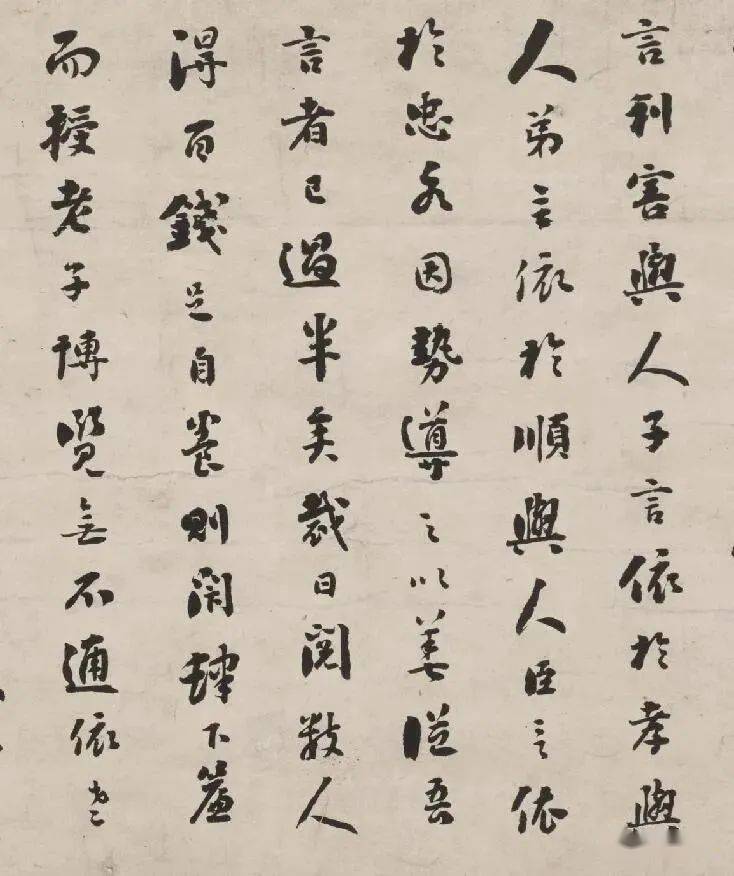 言利害與人子言依於孝與
人弟言依於順與人臣言依
於忠各因勢導之以善從吾
言者已過半矣裁日閱數人
得百錢足自養則閉肆下簾
而授老子博覽無不通依老